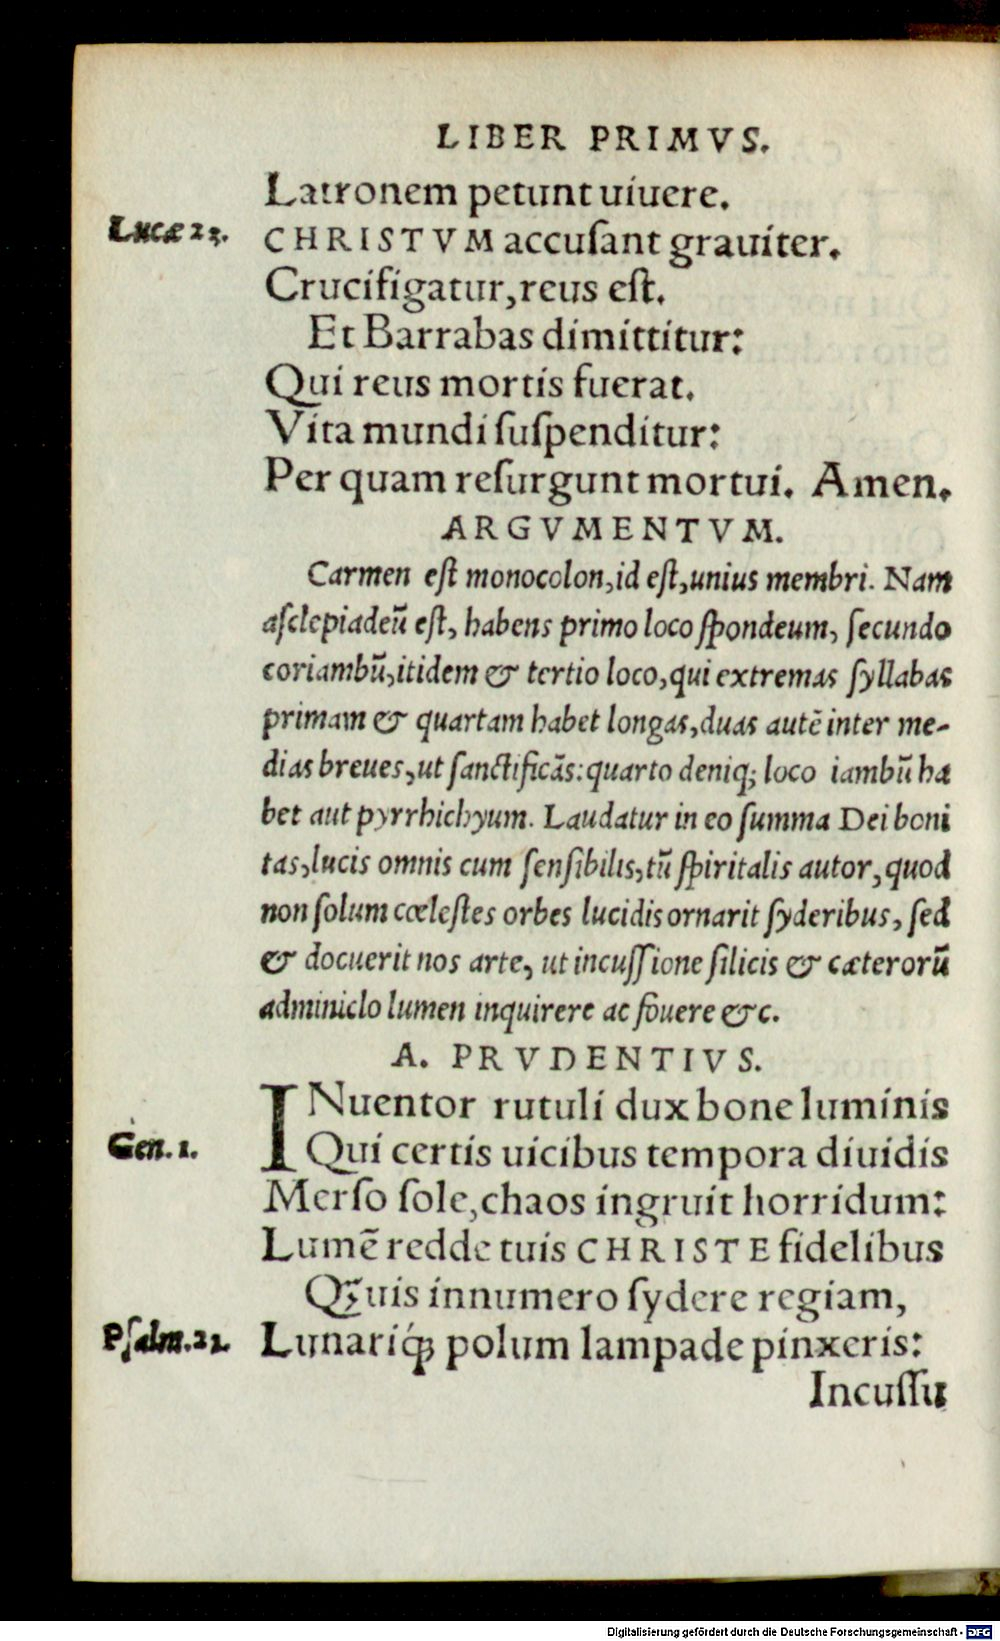 LIBER PRIMVS.
Latronem petunt uiuere.
Lucæ 23.
CHRISTVM accuſant grauiter.
Crucifigatur, reus eſt.
Et Barrabas dimittitur:
Qui reus mortis fuerat.
Vita mundi ſuſpenditur:
Per quam reſurgunt mortui. Amen.
ARGVMENTVM.
Carmen eſt monocolon, id eſt, unius membri. Nam
aſclepiadeũ eſt, habens primo loco ſpondeum, ſecundo
coriambũ, itidem & tertio loco, qui extremas ſyllabas
primam & quartam habet longas, duas autẽ inter me-
dias breues, ut ſanctificãs: quarto deniq; loco iambũ ha
bet aut pyrrhichyum. Laudatur in eo ſumma Dei boni
tas, lucis omnis cum ſenſibilis, tũ ſpiritalis autor, quod
non ſolum cœleſtes orbes lucidis ornarit ſyderibus, ſed
& docuerit nos arte, ut incuſſione ſilicis & cæterorũ
adminiclo lumen inquirere ac fouere &c.
A. PRVDENTIVS.
INuentor rutuli dux bone luminis
Gen. 1.
Qui certis uicibus tempora diuidis
Merſo ſole, chaos ingruit horridum:
Lumẽ redde tuis CHRISTE fidelibus
Qꝫuis innumero ſydere regiam,
Pſalm. 22.
Lunariq́ꝫ polum lampade pinxeris:
Incuſſu
Digitalisierung gefördert durch die Deutsche Forschungsgemeinschaft - DFG